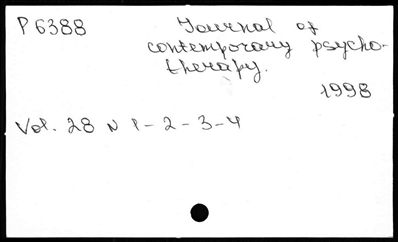 P 6388
Journal of
contemporary psycho-
therapy.
1998
Vol. 28 N 1-2-3-4